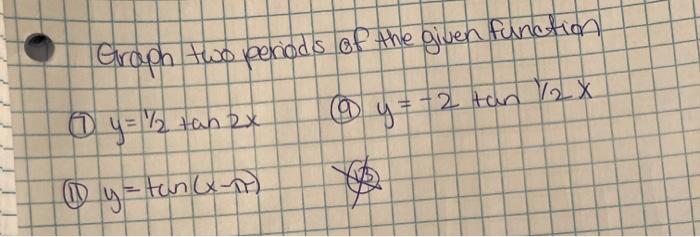 Graph two periods of the given function
⑦ y = 1/2 tan 2x ⑨ y = -2 tan 1/2 x
⑪ y = tan(x-π)